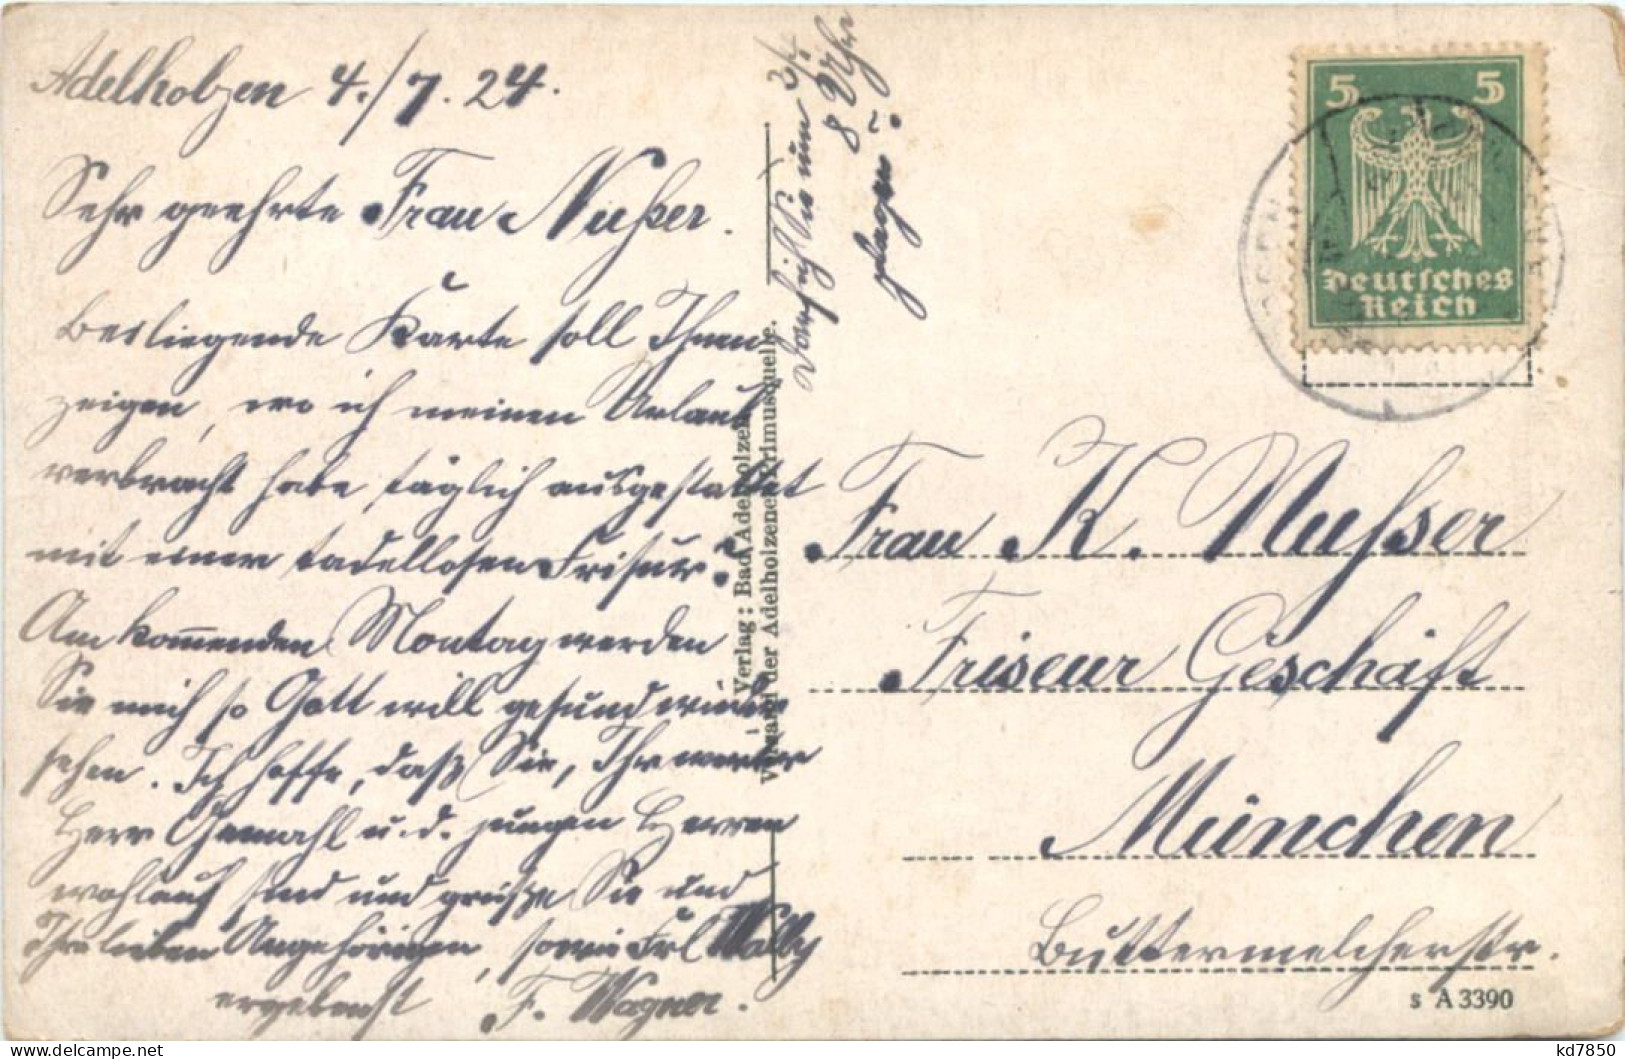 Adelholzen 4./7.24.
Sehr geehrte Frau Nußer.
Beiliegende Karte soll Ihnen
zeigen, wo ich meinen Urlaub
verbracht habe täglich ausgestattet
mit einer tadellosen Frisur.
Am kommenden Montag werden
Sie mich so Gott will gesund wieder
sehen. Ich hoffe, daß Sie, Ihr werter
Herr Gemahl u. d. jungen Herren
wohlauf sind und grüße Sie und
Ihre lieben Angehörigen, sowie Frl Wally
ergebenst F. Wagner.
Darf ich Sie um
8 Uhr
plagen?
Verlag: Bad Adelholzen
Versand der Adelholzener Primusquelle.
5 5
Deutsches
Reich
Frau K. Nußser
Friseur Geschäft
München
Buttermelcherstr.
s A 3390
kd7850